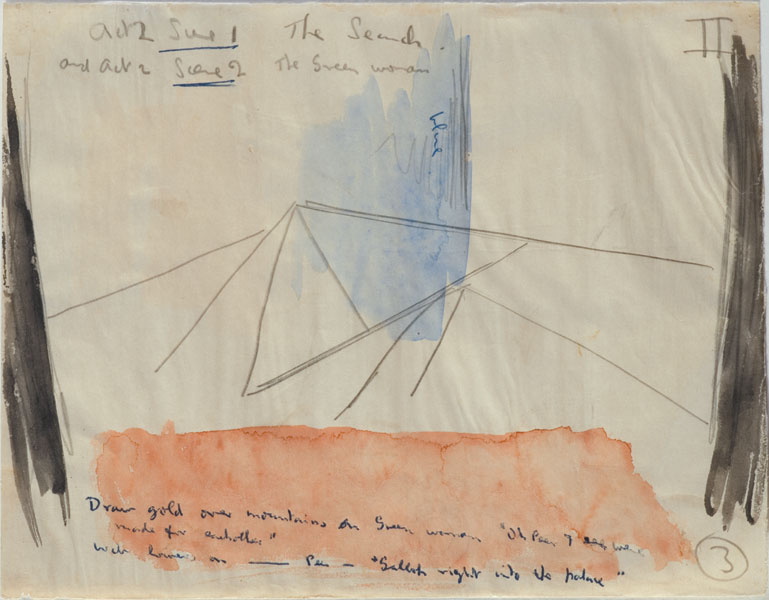 Act 2 Scene 1 The Search. II
and Act 2 Scene 2 The Green woman
blue
Draw gold over mountains on Green woman "Oh Peer I see we're
made for eachother"
on —— Peer – "Gallop right into the palace"
3